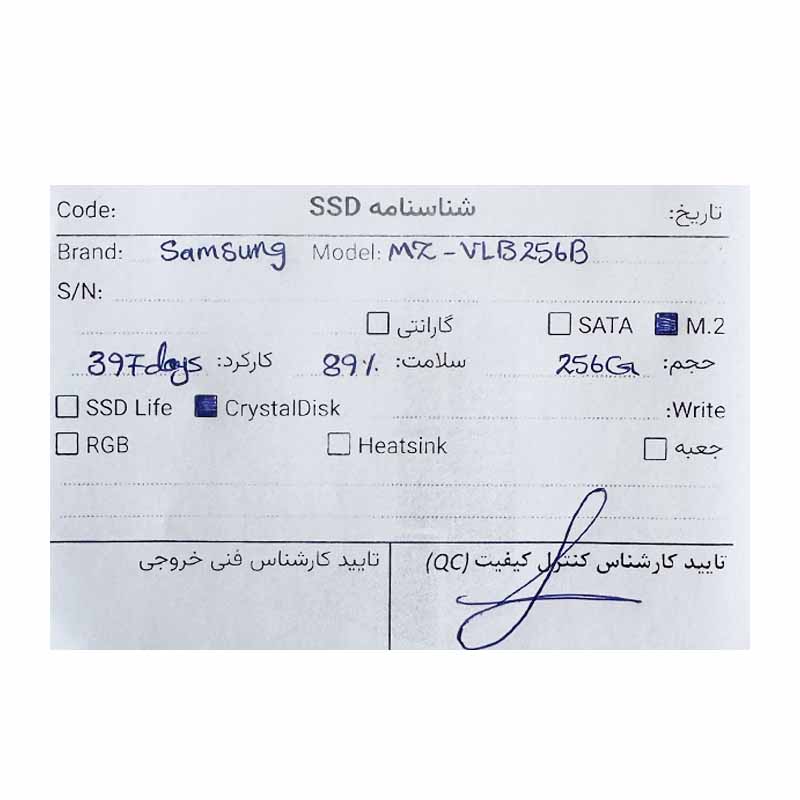 Code: شناسنامه SSD تاریخ:
Brand: Samsung Model: MZ-VLB256B
S/N:
گارانتی SATA M.2
حجم: 256G سلامت: 89% کارکرد: 397days
SSD Life CrystalDisk Write:
RGB Heatsink جعبه
تایید کارشناس کنترل کیفیت (QC) تایید کارشناس فنی خروجی